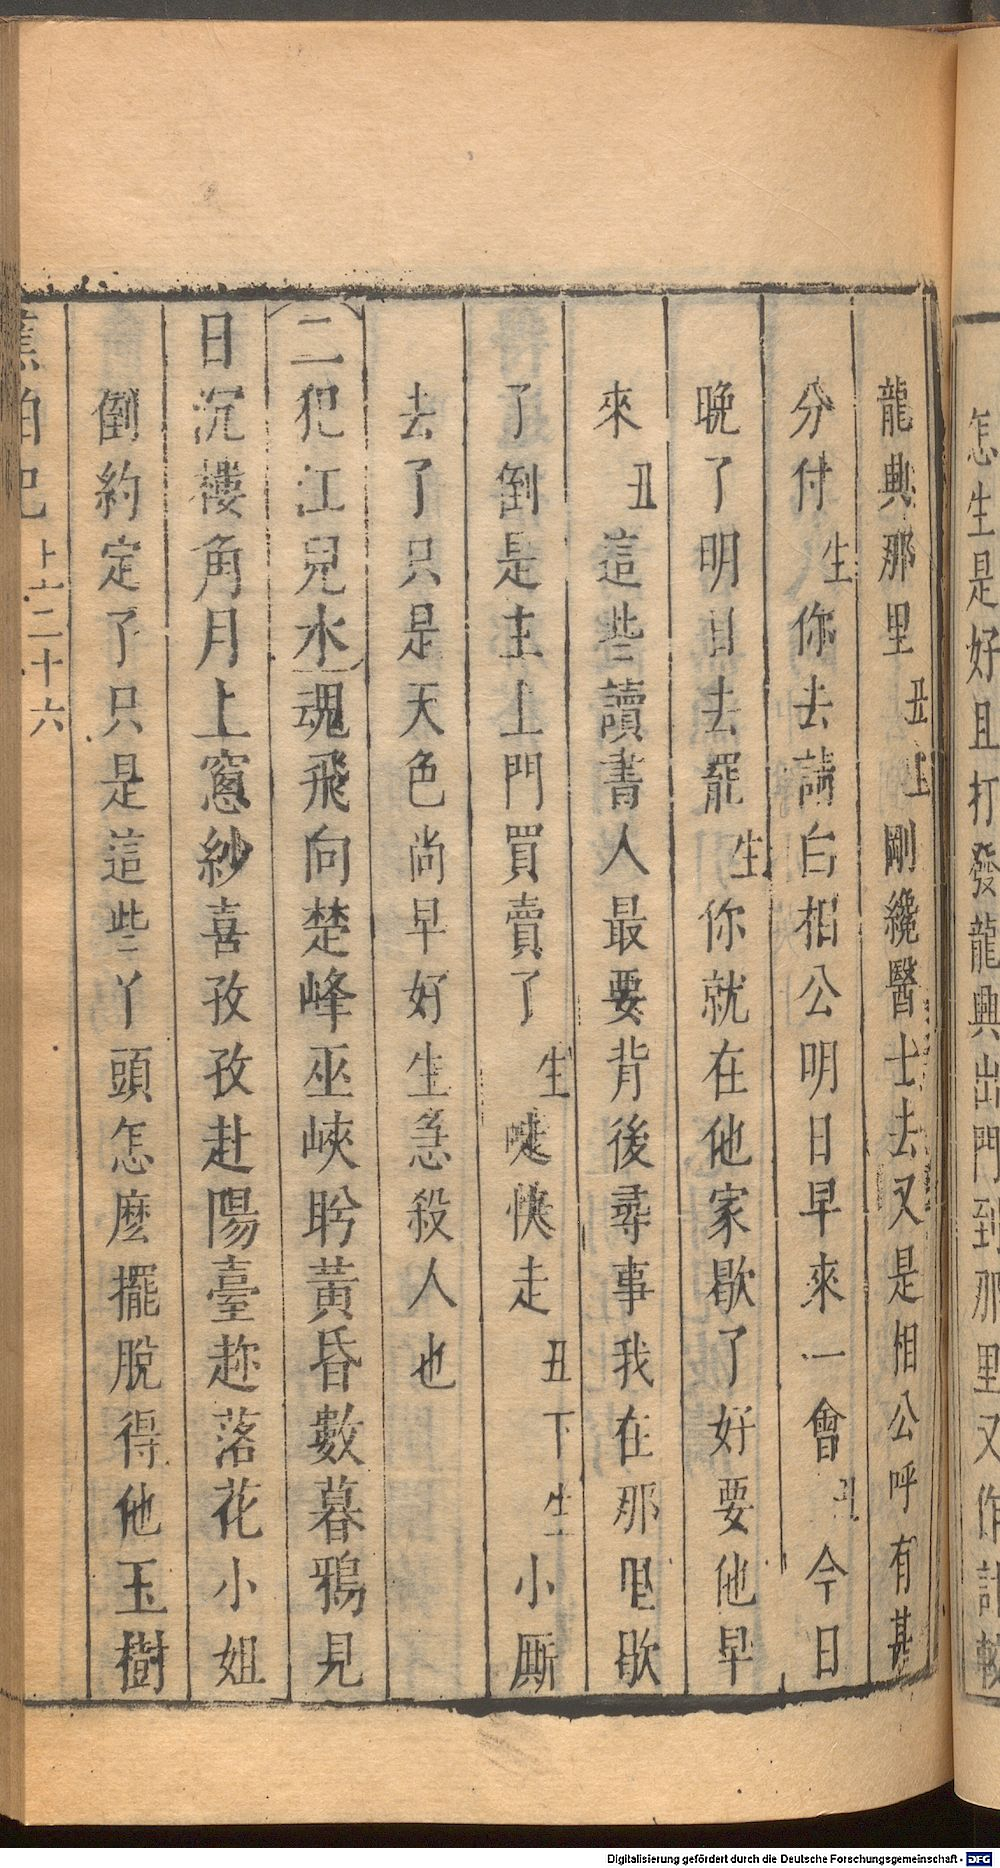 怎生是好且打發龍興出門到那里又作計較
龍興那里丑上剛纔醫士去又是相公呼有甚
分付生你去請白相公明日早來一會丑今日
晚了明日去罷生你就在他家歇了好要他早
來丑這些讀書人最要背後尋事我在那里歇
了倒是主上門買賣了生唗快走丑下生小厮
去了只是天色尚早好生急殺人也
二犯江兒水魂飛向楚峰巫峽盻黃昏數暮鴉見
日沉樓角月上窻紗喜孜孜赴陽臺趂落花小姐
倒約定了只是這些丫頭怎麽擺脫得他玉樹
蕉帕記 二十六
Digitalisierung gefördert durch die Deutsche Forschungsgemeinschaft - DFG